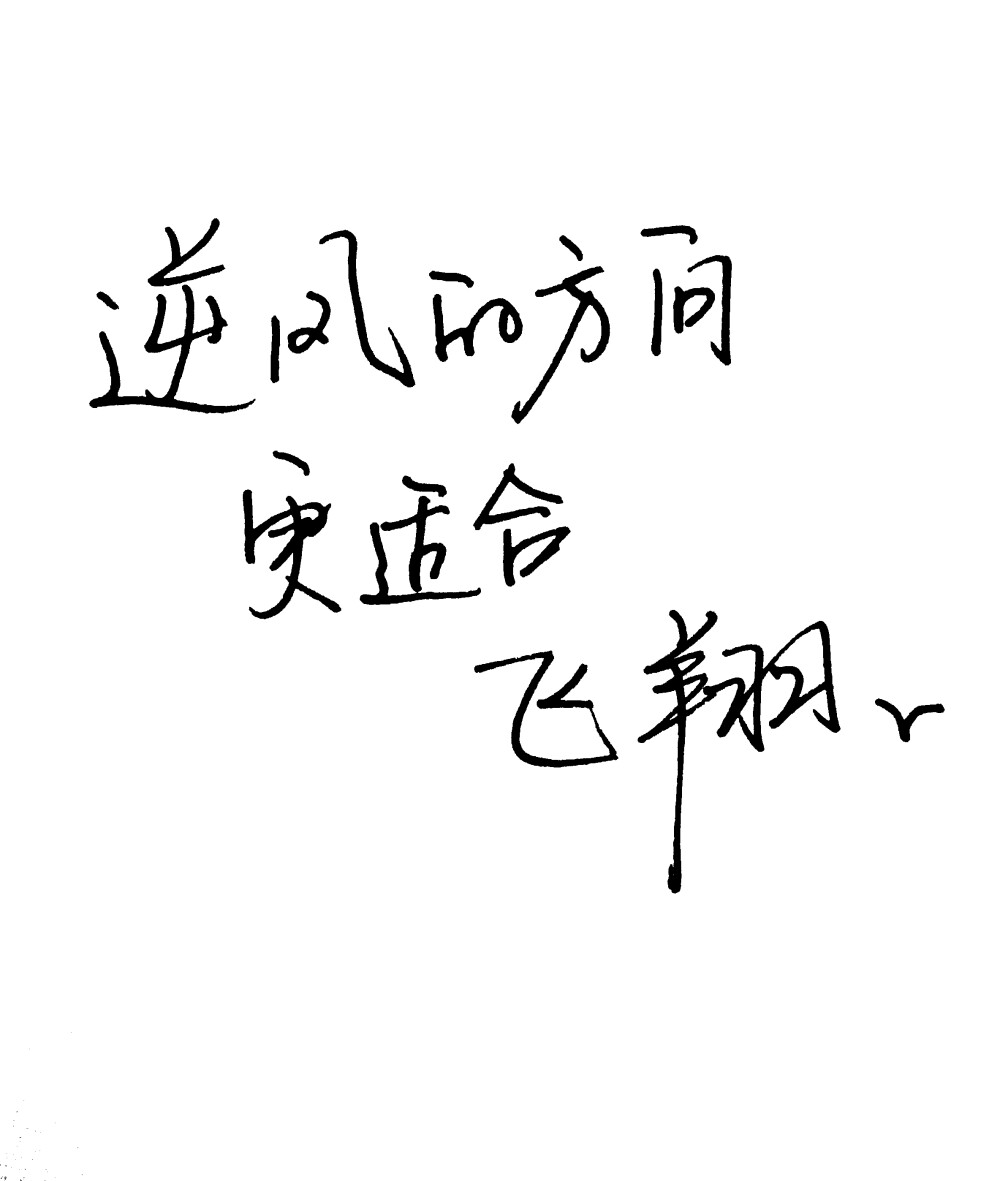 逆风的方向
更适合
飞翔、